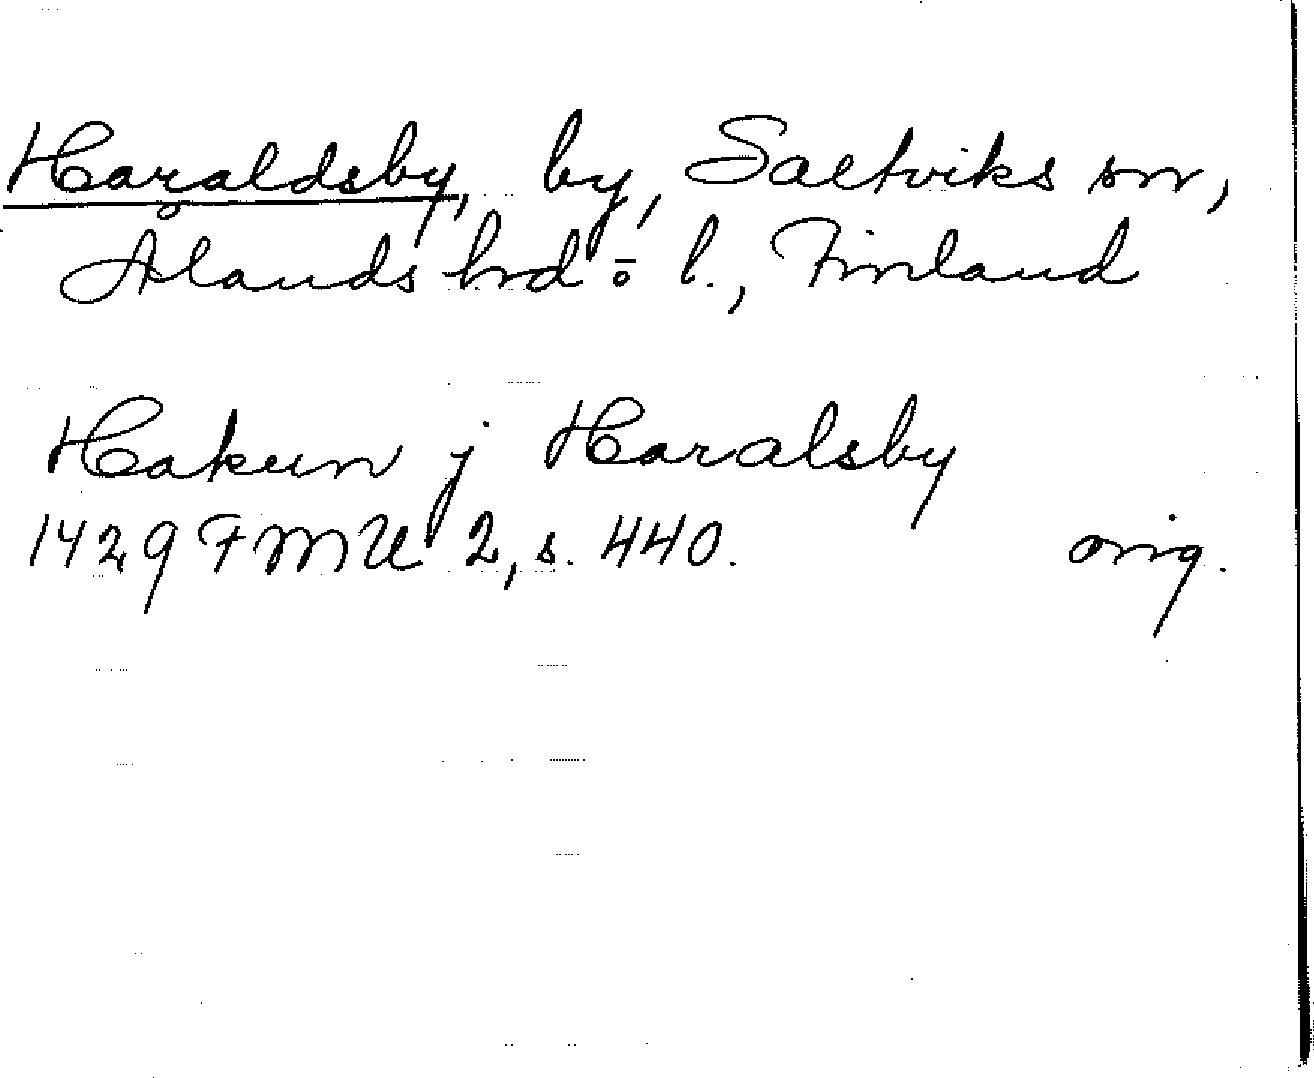 Haraldsby, by, Saltviks sn,
Ålands hrd o l., Finland
Hakun j Haralsby
1429 FMU 2, s. 440. orig.